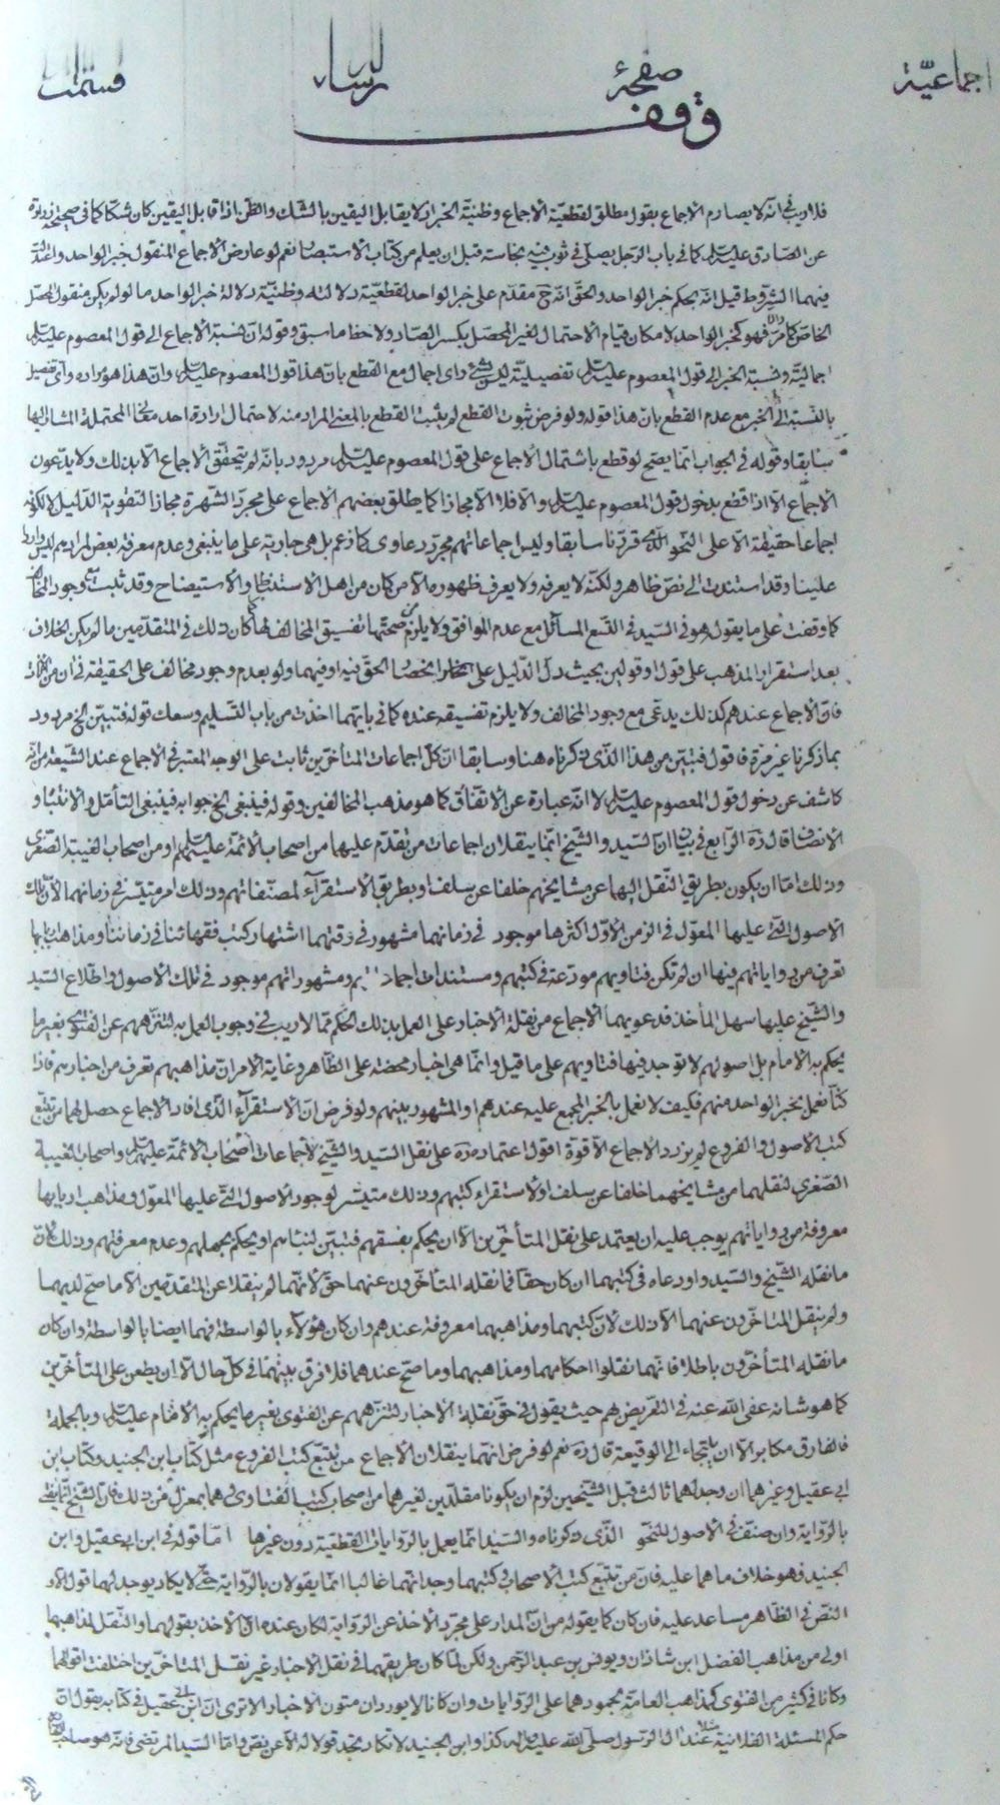 اجماعيّة صفحهٔ الرساله قسمت
وقف
فلا ريب في انّه لا يصادم الاجماع بقول مطلق لقطعيّة الاجماع وظنيّة الخبر اذ لا يقابل اليقين بالشك والظن اذا قابل اليقين كان شكّا كما في صحيحة زرارة
عن الصّادق عليه السلام كما في باب الرّجل يصلّي في ثوب فيه نجاسة قبل ان يعلم من كتاب الاستبصار نعم لو عارض الاجماع المنقول خبر الواحد
فيهما الشروط قيل انّه بحكم خبر الواحد والحق انّه ح مقدّم على خبر الواحد لقطعيّة دلالته وظنيّة دلالة خبر الواحد ما لو لم يكن منقول المحصّل
الخاصّ كما مرّ فهو كخبر الواحد لامكان قيام الاحتمال لغير المحصل بكسر الصّاد ولاحظ ما سبق وقوله انّ نسبة الاجماع الى قول المعصوم عليه السلام
اجماليّة ونسبة الخبر الى قول المعصوم عليه السلام تفصيليّة ليس بشئ واى اجمال مع القطع بانّ هذا قول المعصوم عليه السلام وانّ هذا هو مراده واى تفصيل
بالنّسبة الى الخبر مع عدم القطع بانّ هذا قوله ولو فرض ثبوت القطع لم يثبت القطع بالمعنى المراد منه لاحتمال ارادة احد المحتملة المشار اليها
سابقا وقوله في الجواب انّما يصحّ لو قطع باشتمال الاجماع على قول المعصوم عليه السلام مردود بانّه لم يتحقّق الاجماع الّا بذلك ولا يدّعون
الاجماع الّا اذا قطع بدخول قول المعصوم عليه السلام والّا فلا الّا مجازا كما يطلق بعضهم الاجماع على مجرّد الشّهرة مجازا لتقوية الدّليل لا لكونه
اجماعا حقيقة الّا على النحو الّذي قرّرنا سابقا وليس اجماعاتهم مجرّد دعاوى كما زعم بل هي جارية على ما ينبغي وعدم معرفة بعض لمرادهم ليس واردا
علينا وقد استندت الى نصّ ظاهر ولكنّه لا يعرفه ولا يعرف ظهوره الّا من كان من اهل الاستنظار والاستيضاح وقد ثبت وجود المخالف
كما وقفت على ما يقوله هو في السّيد في التسع المسائل مع عدم الموافق ولا يلزم من صحّتها تفسيق المخالف لها كان ذلك في المتقدّمين ما لم يكن الخلاف
بعد استقرار المذهب على قول او قولين بحيث دلّ الدّليل على انحصار الحق فيه او فيهما ولو بعدم وجود مخالف على الحقيقة في ان من الانات
فانّ الاجماع عندهم كذلك يدعى مع وجود المخالف ولا يلزم تفسيقه عنده كما في بايتهما اخذت من باب التّسليم وسعك قوله فتبيّن الخ مردود
بما ذكرنا غير مرة فاقول فتبيّن من هذا الّذي ذكرناه هنا وسابقا انّ كلّ اجماعات المتأخّرين ثابت على الوجه المعتبر في الاجماع عند الشّيعة من انّه
كاشف عن دخول قول المعصوم عليه السلام لا انّه عبارة عن الاتّفاق كما هو مذهب المخالفين وقوله فينبغي الخ جوابه فينبغي التأمّل والانتباه و
الانصاف قال ره الرّابع في بيان انّ السّيد والشّيخ انّما ينقلان اجماعات من تقدّم عليهما من اصحاب الائمّة عليهم السلام او من اصحاب الغيبة الصّغرى
وذلك امّا ان يكون بطريق النّقل اليهما عن مشايخهم خلفا عن سلف او بطريق الاستقراء لمصنّفاتهم وذلك امر متيسّر في زمانهما لانّ تلك
الاصول الّتي عليها المعوّل في الزمن الاوّل اكثرها موجود في زمانهما مشهور في وقتهما اشتهار كتب فقهائنا في زماننا ومذاهب اربابها
تعرف من رواياتهم فيها ان لم تكن فتاويهم مودعة في كتبهم ومستندات اجماعاتهم ومشهوراتهم موجود في تلك الاصول واطلاع السّيد
والشّيخ عليها سهل المأخذ فدعويهما الاجماع من نقلة الاخبار على العمل بذلك الحكم ممّا لا ريب في وجوب العمل به لتنزّههم عن الفتوى بغير ما
يحكم به الامام بل اصولهم لا توجد فيها فتاويهم على ما قيل وانّما هي اخبار محضة على الظّاهر وغاية الامر انّ مذاهبهم تعرف من اخبارهم فاذا
كنّا نعمل بخبر الواحد منهم فكيف لا نعمل بالخبر المجمع عليه عندهم او المشهور بينهم ولو فرض انّ الاستقراء الّذي افاد الاجماع حصل لهما من تتبّع
كتب الاصول والفروع لم يزدد الاجماع الّا قوة اقول اعتماده ره على نقل السّيد والشّيخ لاجماعات اصحاب الائمّة عليهم السلام واصحاب الغيبة
الصّغرى لنقلهما من مشايخهما خلفا عن سلف او لاستقراء كتبهم وذلك متيسّر لوجود الاصول الّتي عليها المعوّل ومذاهب اربابها
معروفة من رواياتهم يوجب عليه ان يعتمد على نقل المتأخّرين الّا ان يحكم بفسقهم فتبيّن لنبائهم او يحكم بجهلهم وعدم معرفتهم وذلك كان
ما نقله الشّيخ والسّيد واودعاه في كتبهما ان كان حقّا فما نقله المتأخّرون عنهما حقّ لانّهما لم ينقلا عن المتقدّمين الّا ما صحّ لديهما
ولم ينقل المتأخّرون عنهما الّا ذلك لانّ كتبهما ومذاهبهما معروفة عندهم وان كان هؤلاء بالواسطة فهما ايضا بالواسطة وان كان
ما نقله المتأخّرون باطلا فانّهما نقلوا احكامهما ومذاهبهما وما صحّ عندهما فلا فرق بينهما في كلّ حال الّا ان يطعن على المتأخّرين
كما هو شانه عفى اللّه عنه في التّعريض لهم حيث يقول في حق نقلة الاخبار لتنزّههم عن الفتوى بغير ما يحكم به الامام عليه السلام وبالجملة
فالفارق مكابر الّا ان يلتجاء الى الوقيعة قال ره نعم لو فرض انّهما ينقلان الاجماع من تتبّع كتب الفروع مثل كتاب ابن الجنيد وكتاب ابن
ابي عقيل وغيرهما ان وجد لهما ثالث قبل الشّيخين لزم ان يكونا مقلّدين لغيرهما من اصحاب كتب الفتاوى وهما بمعزل عن ذلك فانّ الشّيخ انّما يفتي
بالرّواية وان صنّف في الاصول للنّحو الّذي ذكرناه والسّيد انّما يعمل بالرّوايات القطعيّة دون غيرها امّا قوله في ابن ابي عقيل وابن
الجنيد فهو خلاف ما هما عليه فانّ من تتبّع كتب الاصحاب وكتبهما وجد انّهما غالبا انّما يقولان بالرّواية حتّى لا يكاد يوجد لهما قول الّا و
النّص في الظّاهر مساعد عليه فان كان كما يقوله من انّ المدار على مجرّد الاخذ عن الرّواية لكان عنده انّ الاخذ بقولهما والنّقل لمذاهبهما
اولى من مذاهب الفضل ابن شاذان ويونس بن عبد الرّحمن ولكن لمّا كان طريقهما في نقل الاخبار غير نقل المتأخّرين اختلفت اقوالهما
وكانا في كثير من الفتوى كمذاهب العامّة لجمودهما على الرّوايات وان كانا لا يوردان متون الاخبار الا ترى انّ ابن ابي عقيل في كتابه يقول انّ
حكم المسئلة الفلانية عند آل الرّسول صلّى اللّه عليه وآله كذا وابن الجنيد لا تكاد تجد قولا له الّا عن نصّ وامّا السّيد المرتضى فانّه هو صاحب